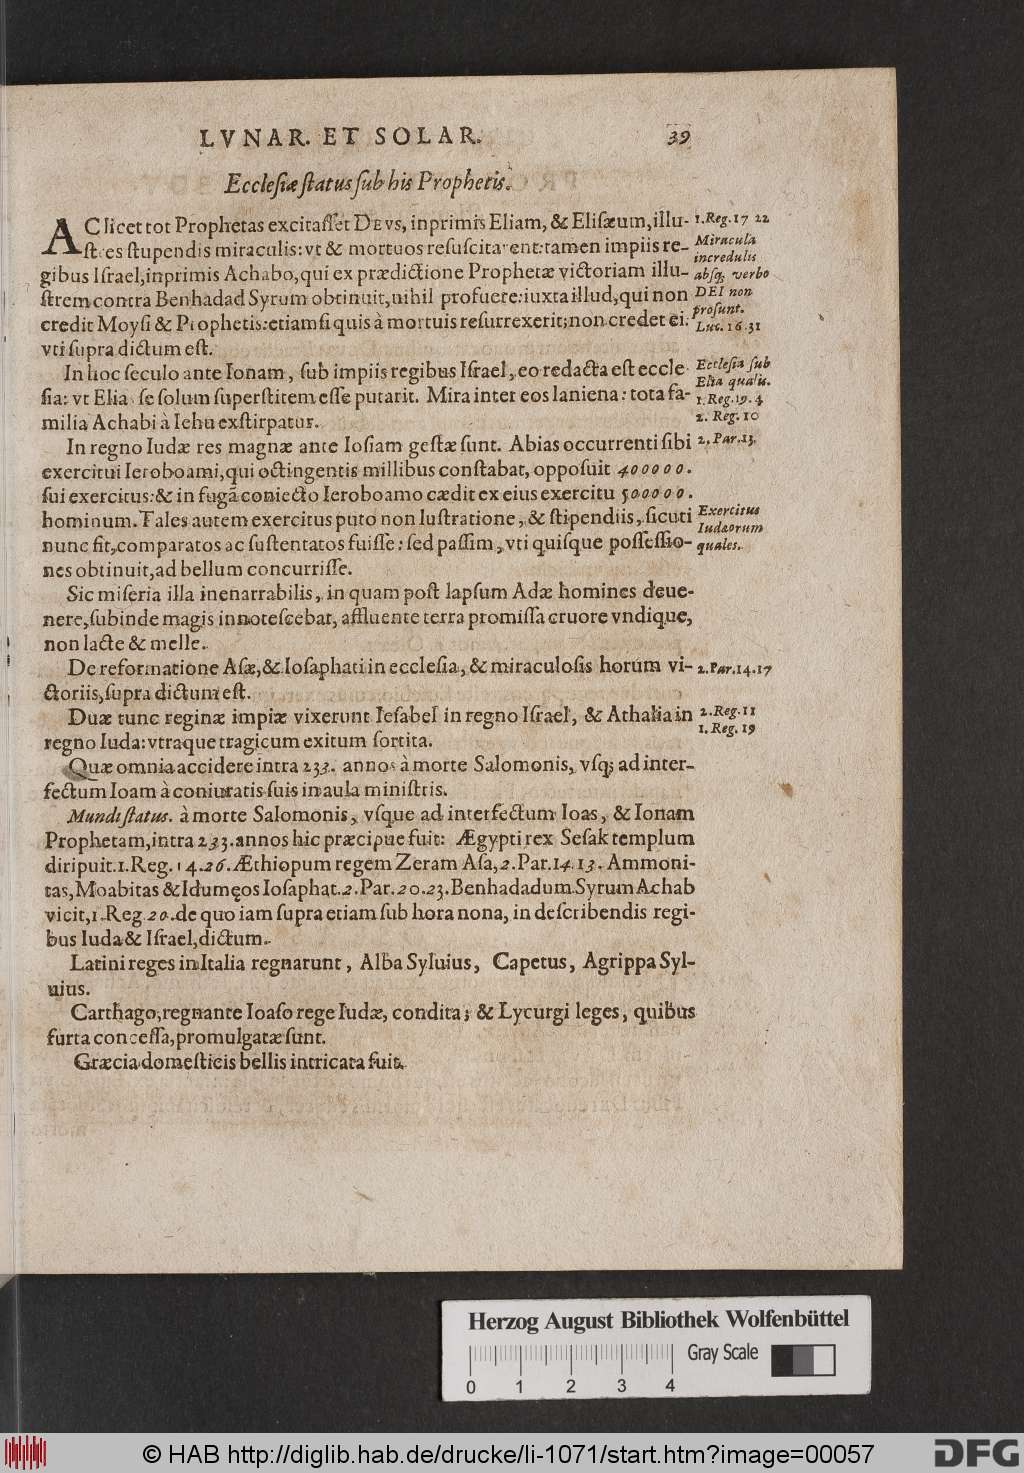 LVNAR. ET SOLAR. 39
Ecclesiæ status sub his Prophetis.
AC licet tot Prophetas excitaſſet DEVS, inprimis Eliam, & Eliſæum, illu-
ſtres ſtupendis miraculis: vt & mortuos reſuſcitarent: tamen impiis re-
gibus Iſrael, inprimis Achabo, qui ex prædictione Prophetæ victoriam illu-
ſtrem contra Benhadad Syrum obtinuit, nihil profuere: iuxta illud, qui non
credit Moyſi & Prophetis: etiamſi quis à mortuis reſurrexerit; non credet ei.
vti ſupra dictum eſt.
1. Reg. 17 22
Miracula
incredulis
absq; verbo
DEI non
proſunt.
Luc. 16. 31
In hoc ſeculo ante Ionam, ſub impiis regibus Iſrael, eo redacta eſt eccle
ſia: vt Elia ſe ſolum ſuperſtitem eſſe putarit. Mira inter eos laniena: tota fa-
milia Achabi à Iehu exſtirpatur.
Eccleſia ſub
Elia qualis.
1. Reg. 19. 4
2. Reg. 10
In regno Iudæ res magnæ ante Ioſiam geſtæ ſunt. Abias occurrenti ſibi
exercitui Ieroboami, qui octingentis millibus conſtabat, oppoſuit 400000.
ſui exercitus: & in fugã coniecto Ieroboamo cædit ex eius exercitu 500000.
hominum. Tales autem exercitus puto non luſtratione, & ſtipendiis, ſicuti
nunc fit, comparatos ac ſuſtentatos fuiſſe: ſed paſſim, vti quiſque poſſeſſio-
nes obtinuit, ad bellum concurriſſe.
2. Par. 13.
Exercitus
Iudæorum
quales.
Sic miſeria illa inenarrabilis, in quam poſt lapſum Adæ homines deue-
nere, ſubinde magis innoteſcebat, affluente terra promiſſa cruore vndique,
non lacte & melle.
De reformatione Aſæ, & Ioſaphati in eccleſia, & miraculoſis horum vi-
ctoriis, ſupra dictum eſt.
2. Par. 14. 17
Duæ tunc reginæ impiæ vixerunt Ieſabel in regno Iſrael, & Athalia in
regno Iuda: vtraque tragicum exitum ſortita.
2. Reg. 11
1. Reg. 19
Quæ omnia accidere intra 233. annos à morte Salomonis, vſq; ad inter-
fectum Ioam à coniuratis ſuis in aula miniſtris.
Mundi ſtatus. à morte Salomonis, vſque ad interfectum Ioas, & Ionam
Prophetam, intra 233. annos hic præcipue fuit: Ægypti rex Seſak templum
diripuit. 1. Reg. 14. 26. Æthiopum regem Zeram Aſa, 2. Par. 14. 13. Ammoni-
tas, Moabitas & Idumęos Ioſaphat. 2. Par. 20. 23. Benhadadum Syrum Achab
vicit, 1. Reg. 20. de quo iam ſupra etiam ſub hora nona, in deſcribendis regi-
bus Iuda & Iſrael, dictum.
Latini reges in Italia regnarunt, Alba Syluius, Capetus, Agrippa Syl-
uius.
Carthago, regnante Ioaſo rege Iudæ, condita; & Lycurgi leges, quibus
furta conceſſa, promulgatæ ſunt.
Græcia domeſticis bellis intricata fuit.
Herzog August Bibliothek Wolfenbüttel
Gray Scale
0 1 2 3 4
© HAB http://diglib.hab.de/drucke/li-1071/start.htm?image=00057
DFG